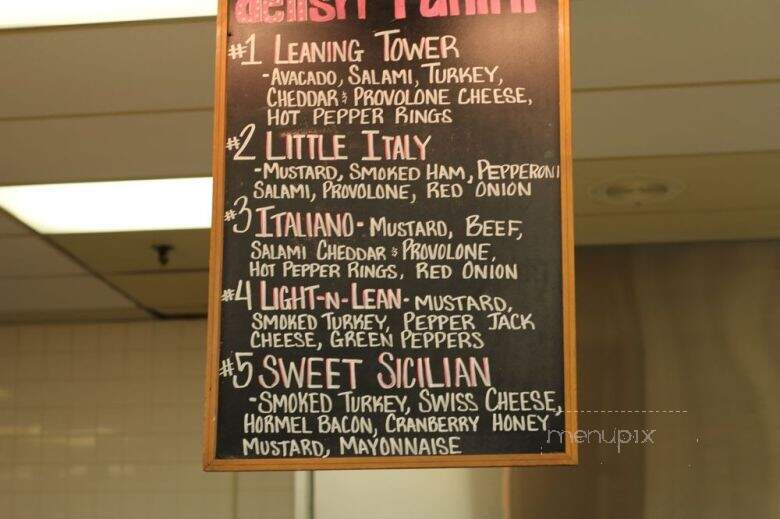 delish Panini
#1 LEANING TOWER
-AVACADO, SALAMI, TURKEY,
CHEDDAR & PROVOLONE CHEESE,
HOT PEPPER RINGS
#2 LITTLE ITALY
-MUSTARD, SMOKED HAM, PEPPERONI
SALAMI, PROVOLONE, RED ONION
#3 ITALIANO- MUSTARD, BEEF,
SALAMI CHEDDAR & PROVOLONE,
HOT PEPPER RINGS, RED ONION
#4 LIGHT-N-LEAN- MUSTARD,
SMOKED TURKEY, PEPPER JACK
CHEESE, GREEN PEPPERS
#5 SWEET SICILIAN
-SMOKED TURKEY, SWISS CHEESE,
HORMEL BACON, CRANBERRY HONEY
MUSTARD, MAYONNAISE
menupix